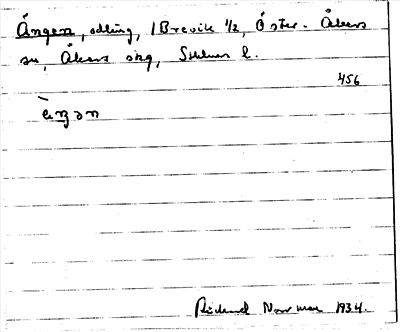 Ängen, odling, 1 Brevik 1/2, Öster-Åkers
sn, Åkers skg, Sthlms l.
456
ὲŋən
Rickard Norrman 1934.